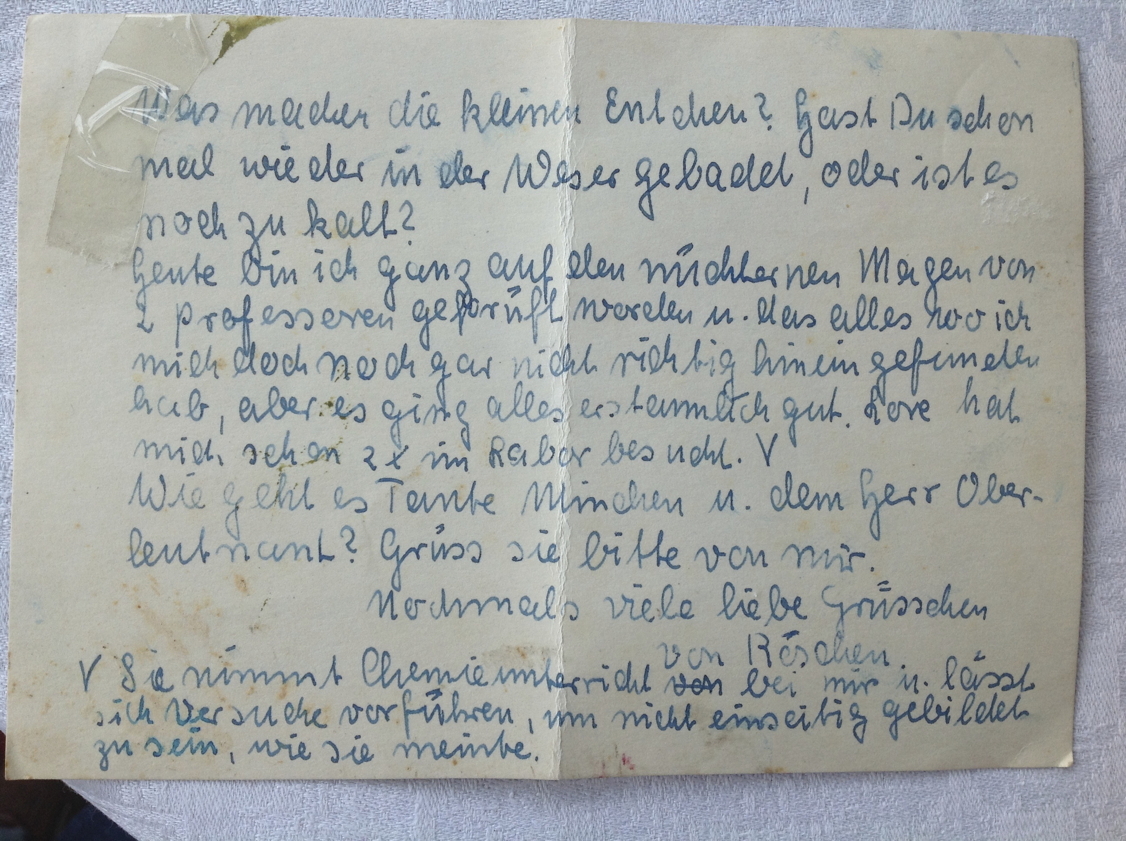 Was machen die kleinen Entchen? Hast Du schon
mal wieder in der Weser gebadet, oder ist es
noch zu kalt?
Heute bin ich ganz auf den nüchternen Magen von
2 Professeren geprüft worden u. das alles wo ich
mich doch noch gar nicht richtig hineingefunden
hab, aber es ging alles erstaunlich gut. Lore hat
mich schon 2x im Labor besucht. V
Wie geht es Tante Minchen u. dem Herr Ober-
leutnant? Grüss sie bitte von mir.
Nochmals viele liebe Grüsschen
von Röschen.
V Sie nimmt Chemieunterricht von bei mir u. lässt
sich Versuche vorführen, um nicht einseitig gebildet
zu sein, wie sie meinte.